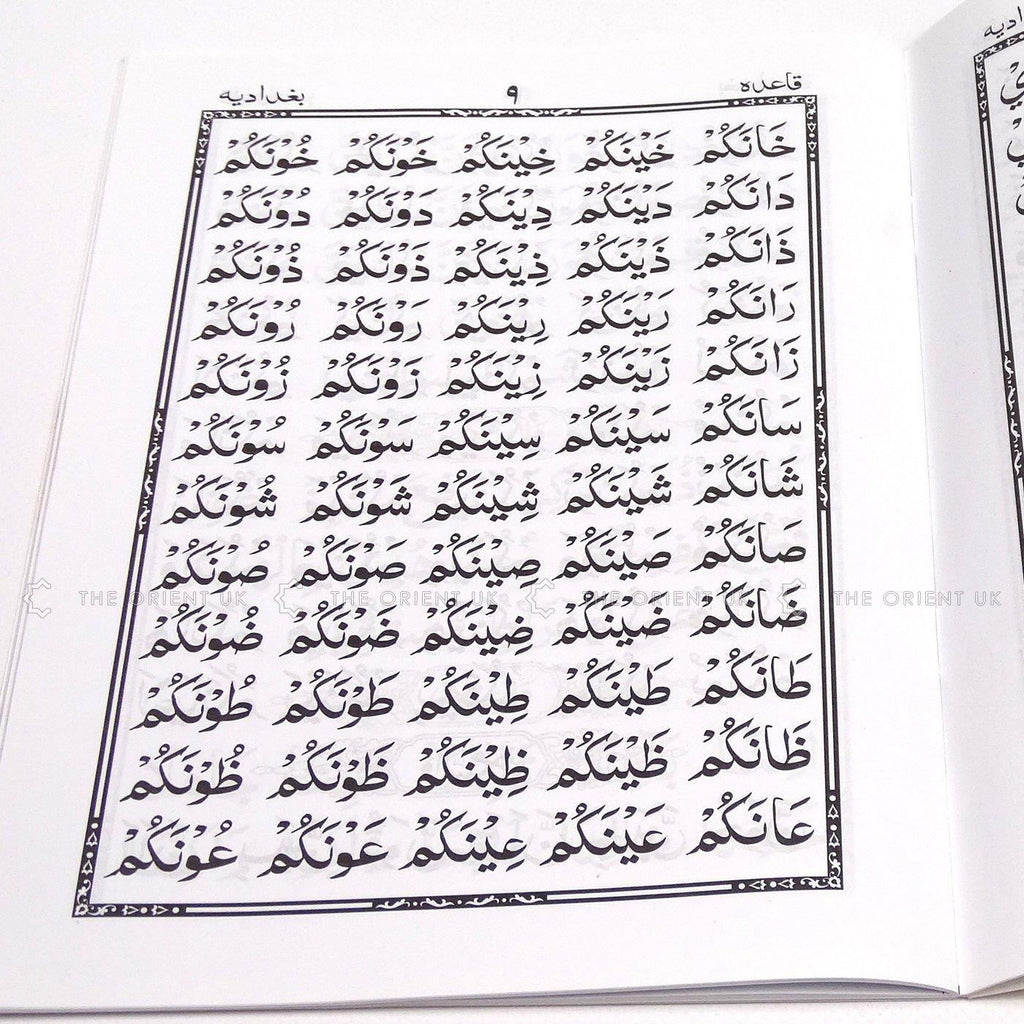 قاعده ٩ بغداديه
خَانَكُمْ خَيْنَكُمْ خِيْنَكُمْ خَوْنَكُمْ خُوْنَكُمْ
دَانَكُمْ دَيْنَكُمْ دِيْنَكُمْ دَوْنَكُمْ دُوْنَكُمْ
ذَانَكُمْ ذَيْنَكُمْ ذِيْنَكُمْ ذَوْنَكُمْ ذُوْنَكُمْ
رَانَكُمْ رَيْنَكُمْ رِيْنَكُمْ رَوْنَكُمْ رُوْنَكُمْ
زَانَكُمْ زَيْنَكُمْ زِيْنَكُمْ زَوْنَكُمْ زُوْنَكُمْ
سَانَكُمْ سَيْنَكُمْ سِيْنَكُمْ سَوْنَكُمْ سُوْنَكُمْ
شَانَكُمْ شَيْنَكُمْ شِيْنَكُمْ شَوْنَكُمْ شُوْنَكُمْ
صَانَكُمْ صَيْنَكُمْ صِيْنَكُمْ صَوْنَكُمْ صُوْنَكُمْ
THE ORIENT UK THE ORIENT UK THE ORIENT UK THE ORIENT UK
ضَانَكُمْ ضَيْنَكُمْ ضِيْنَكُمْ ضَوْنَكُمْ ضُوْنَكُمْ
طَانَكُمْ طَيْنَكُمْ طِيْنَكُمْ طَوْنَكُمْ طُوْنَكُمْ
ظَانَكُمْ ظَيْنَكُمْ ظِيْنَكُمْ ظَوْنَكُمْ ظُوْنَكُمْ
عَانَكُمْ عَيْنَكُمْ عِيْنَكُمْ عَوْنَكُمْ عُوْنَكُمْ